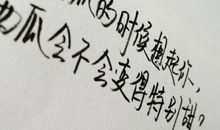 的时候想起你,
西瓜会不会变得特别甜?